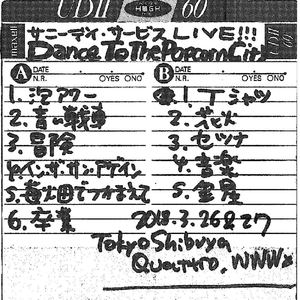 UDII HIGH 60
maxell
サニーデイ・サービス LIVE!!!
Dance To The Popcorn City
UDII 60
A DATE
N.R. OYES ONO
1. 泡アワー
2. 青い戦車
3. 冒険
4. イン・ザ・サン・アゲイン
5. 苺畑でつかまえて
6. 卒業
B DATE
N.R. OYES ONO
1. Tシャツ
2. 花火
3. セツナ
4. 音楽
5. 金星
2018.3.26&27
Tokyo Shibuya
QUATTRO, WWWX